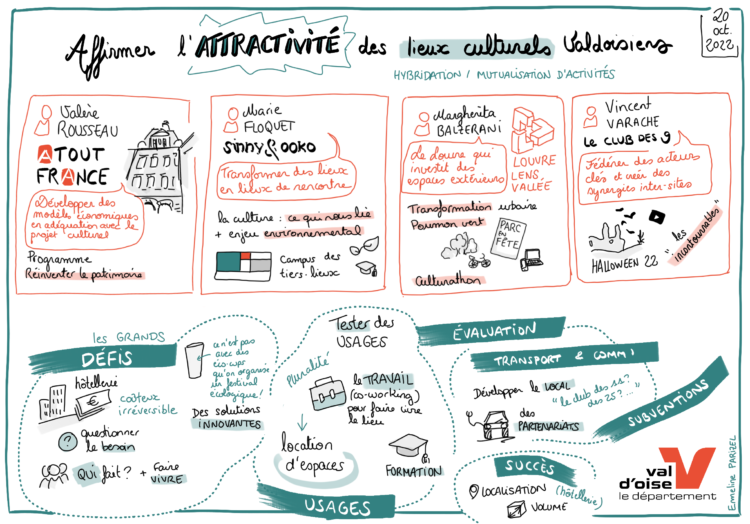 Affirmer l'ATTRACTIVITÉ des lieux culturels Valdoisiens
20
oct.
2022
HYBRIDATION / MUTUALISATION D'ACTIVITÉS
Valère
ROUSSEAU
ATOUT
FRANCE
Développer des
modèle économiques
en adéquation avec le
projet culturel
Programme
Réinventer le patimoire
Marie
FLOQUET
sinny&ooko
Transformer des lieux
en lieux de rencontre
la culture : ce qui nous lie
+ enjeu environnemental
Campus des
tiers-lieux
Margherita
BALZERANI
Le Louvre qui
investit des
espaces extérieurs
LOUVRE
LENS
VALLÉE
Transformation urbaine
Poumon vert
PARC
EN
FÊTE
Culturathon
Vincent
VARACHE
LE CLUB DES 9
Fédérer des acteurs
clés et créer des
synergies inter-sites
HALLOWEEN 22
"les
incontournables"
les GRANDS
DÉFIS
hôtellerie
coûteux
irréversible
questionner
le besoin
QUI fait? + Faire
VIVRE
ce n'est pas
avec des
éco-cup
qu'on organise
un festival
écologique!
Des solutions
INNOVANTES
Tester des
USAGES
Pluralité
le TRAVAIL
(co-working)
pour faire vivre
le lieu
location
d'espaces
FORMATION
USAGES
ÉVALUATION
TRANSPORT & COMM!
Développer le LOCAL
"le club des 11?
des 25?..."
des
PARTENARIATS
SUBVENTIONS
SUCCÈS
LOCALISATION (hôtellerie)
VOLUME
val
d'oise
le département
Emmeline PARIZEL